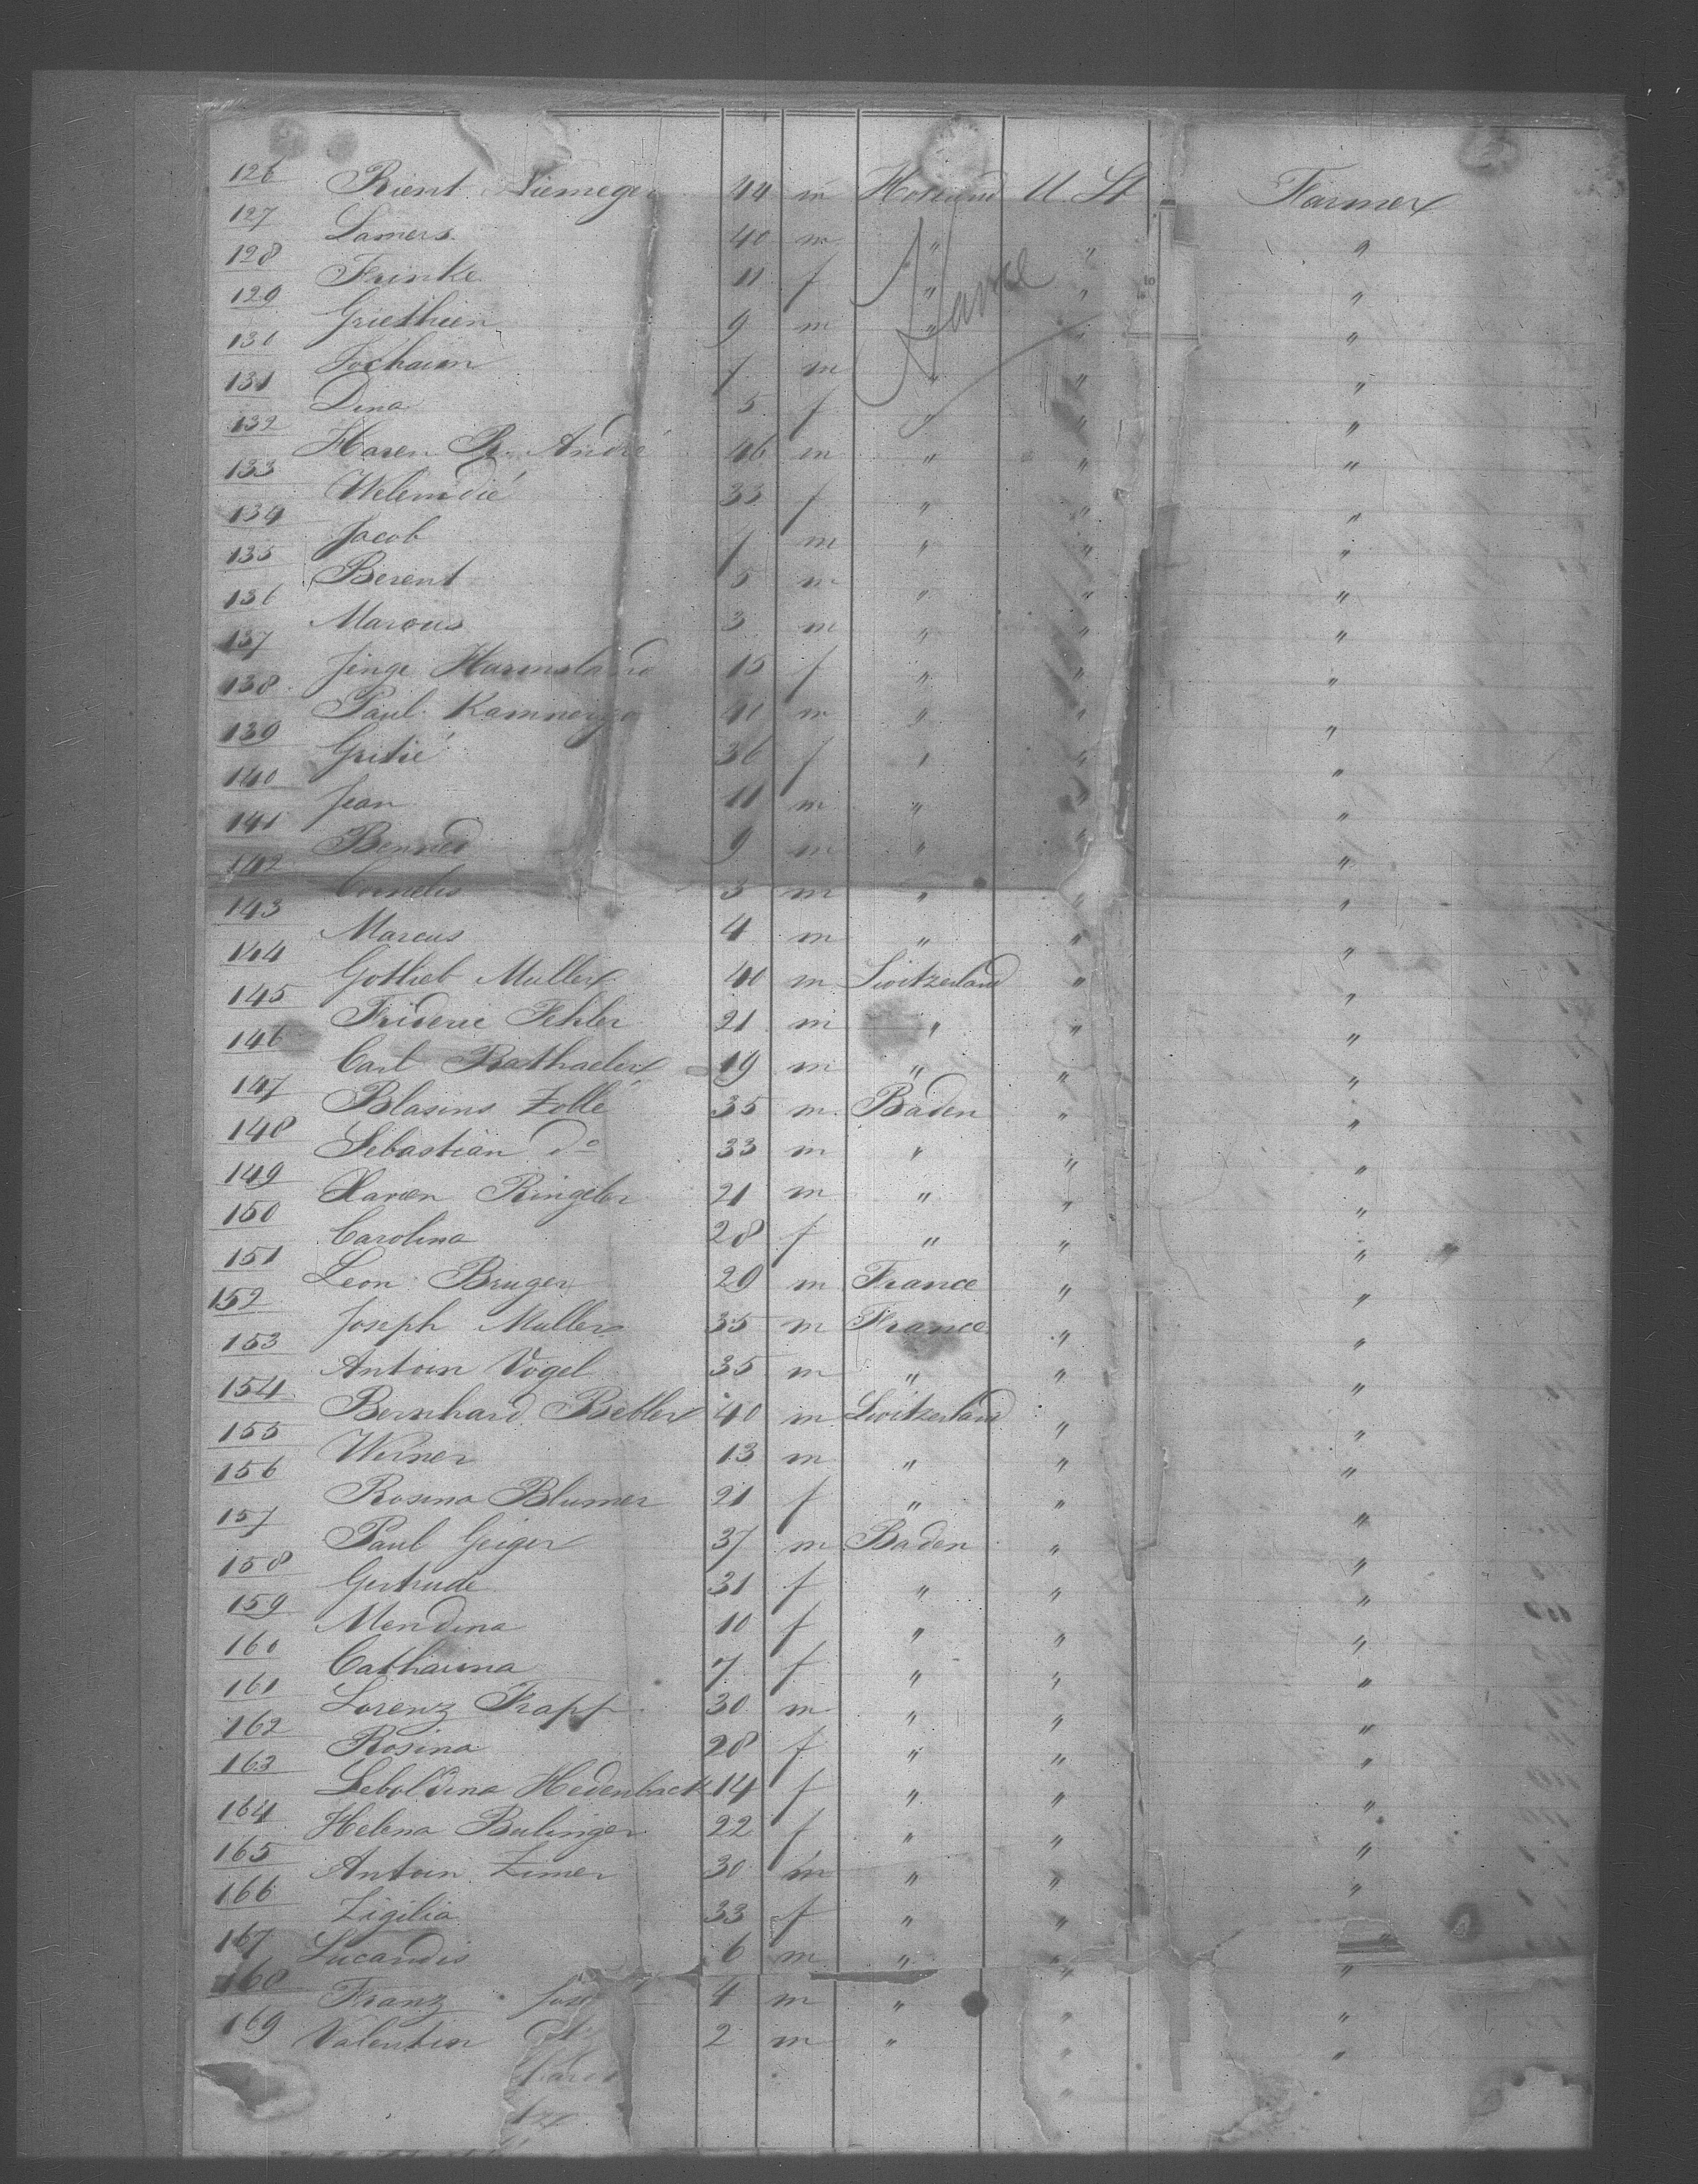 126 Rient Niemeger 44 m Holland U. St Farmer
127 Lamers 40 m " " "
128 Frinke 11 f " " "
Havre
129 Griethien 9 m " " "
130 Jochaim 7 m " " "
131 Dina 5 f " " "
132 Haren Pr. André 46 m " " "
133 Welemdié 33 f " " "
134 Jacob 7 m " " "
135 Berent 5 m " " "
136 Marcus 3 m " " "
137 Jinge 15 f " " "
138 Paul Kamneiga 40 m " " "
139 Gritié 36 f " " "
140 Jean 11 m " " "
141 Benned 9 m " " "
142 Cornelis 3 m " " "
143 Marcus 4 m " " "
144 Gottlieb Muller 40 m Switzerland " "
145 Frideric Fehler 21 m " " "
146 Carl Rathaeler 19 m " " "
147 Blasius Zollé 35 m Baden " "
148 Sebastian do 33 m " " "
149 Xavier Ringeler 21 m " " "
150 Carolina 28 f " " "
151 Leon Bruger 29 m France " "
152 Joseph Muller 35 m France " "
153 Antoin Vogel 35 m " " "
154 Bernhard Bebler 40 m Switzerland " "
155 Werner 13 m " " "
156 Rosina Blumer 21 f " " "
157 Paul Geiger 37 m Baden " "
158 Gertrude 31 f " " "
159 Mendina 10 f " " "
160 Catharina 7 f " " "
161 Lorenz Trapp 30 m " " "
162 Rosina 28 f " " "
163 Leboldina Hedenback 14 f " " "
164 Helena Bulinger 22 f " " "
165 Antoin Zimer 30 m " " "
166 Zigilia 33 f " " "
167 Lucandis 6 m " " "
168 Franz 4 m " " "
169 Valentin 2 m " " "